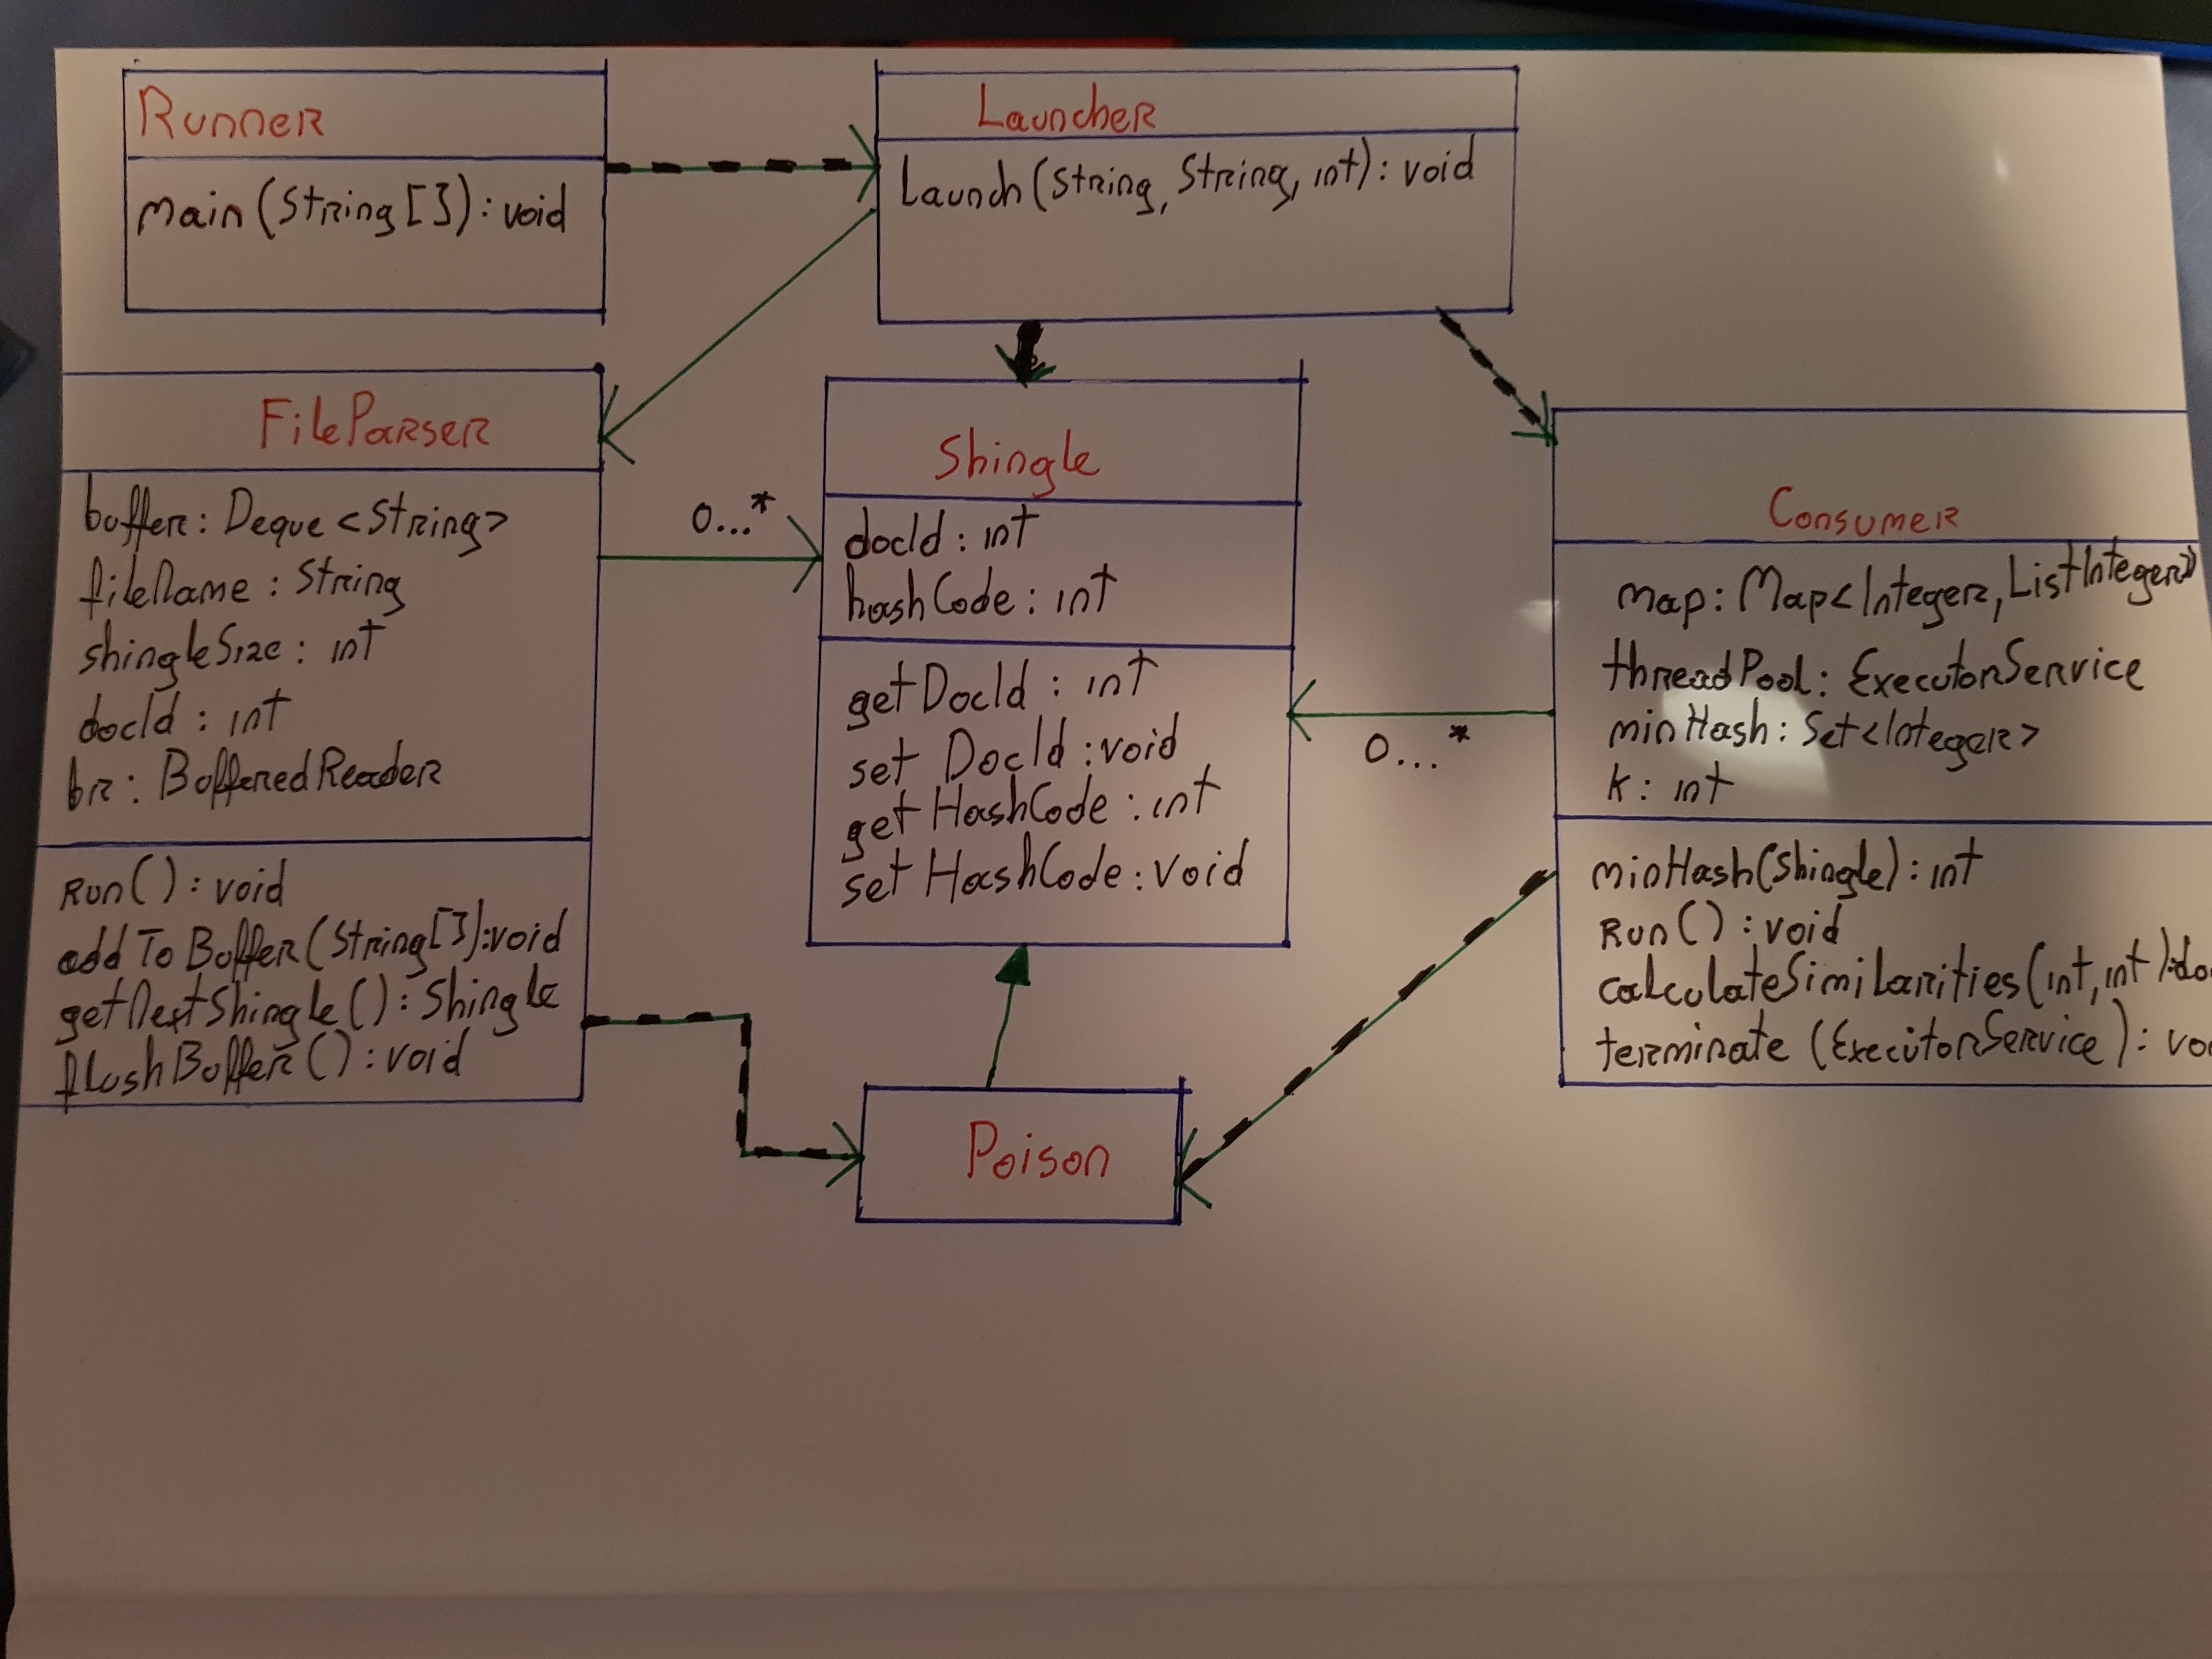 Runner
Main(String[]):void
Launcher
Launch(String,String,int):void
FileParser
buffer: Deque<String>
fileName: String
shingleSize: int
docId: int
br: BufferedReader
Run():void
addToBuffer(String[]):void
getNextShingle():Shingle
flushBuffer():void
0...*
Shingle
docId:int
hashCode:int
getDocId:int
set DocId:void
get HashCode:int
set HashCode:void
0...*
Poison
Consumer
Map:Map<Integer,ListInteger>>
threadPool: ExecutorService
minHash: Set<Integer>
k: int
minHash(Shingle):int
Run():void
calculateSimilarities(int,int):do
terminate (ExecutorService): vo